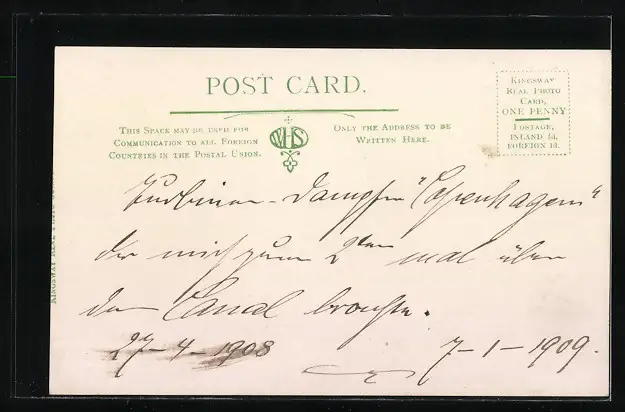 POST CARD.
THIS SPACE MAY BE USED FOR
COMMUNICATION TO ALL FOREIGN
COUNTRIES IN THE POSTAL UNION.
WHS
ONLY THE ADDRESS TO BE
WRITTEN HERE.
KINGSWAY
REAL PHOTO
CARD,
ONE PENNY
POSTAGE,
INLAND ½d.
FOREIGN 1d.
KINGSWAY REAL
Turbinen-Dampfer "Copenhagen"
der mich zum 2ten mal über
den Canal brachte.
27-4-1908 7-1-1909.